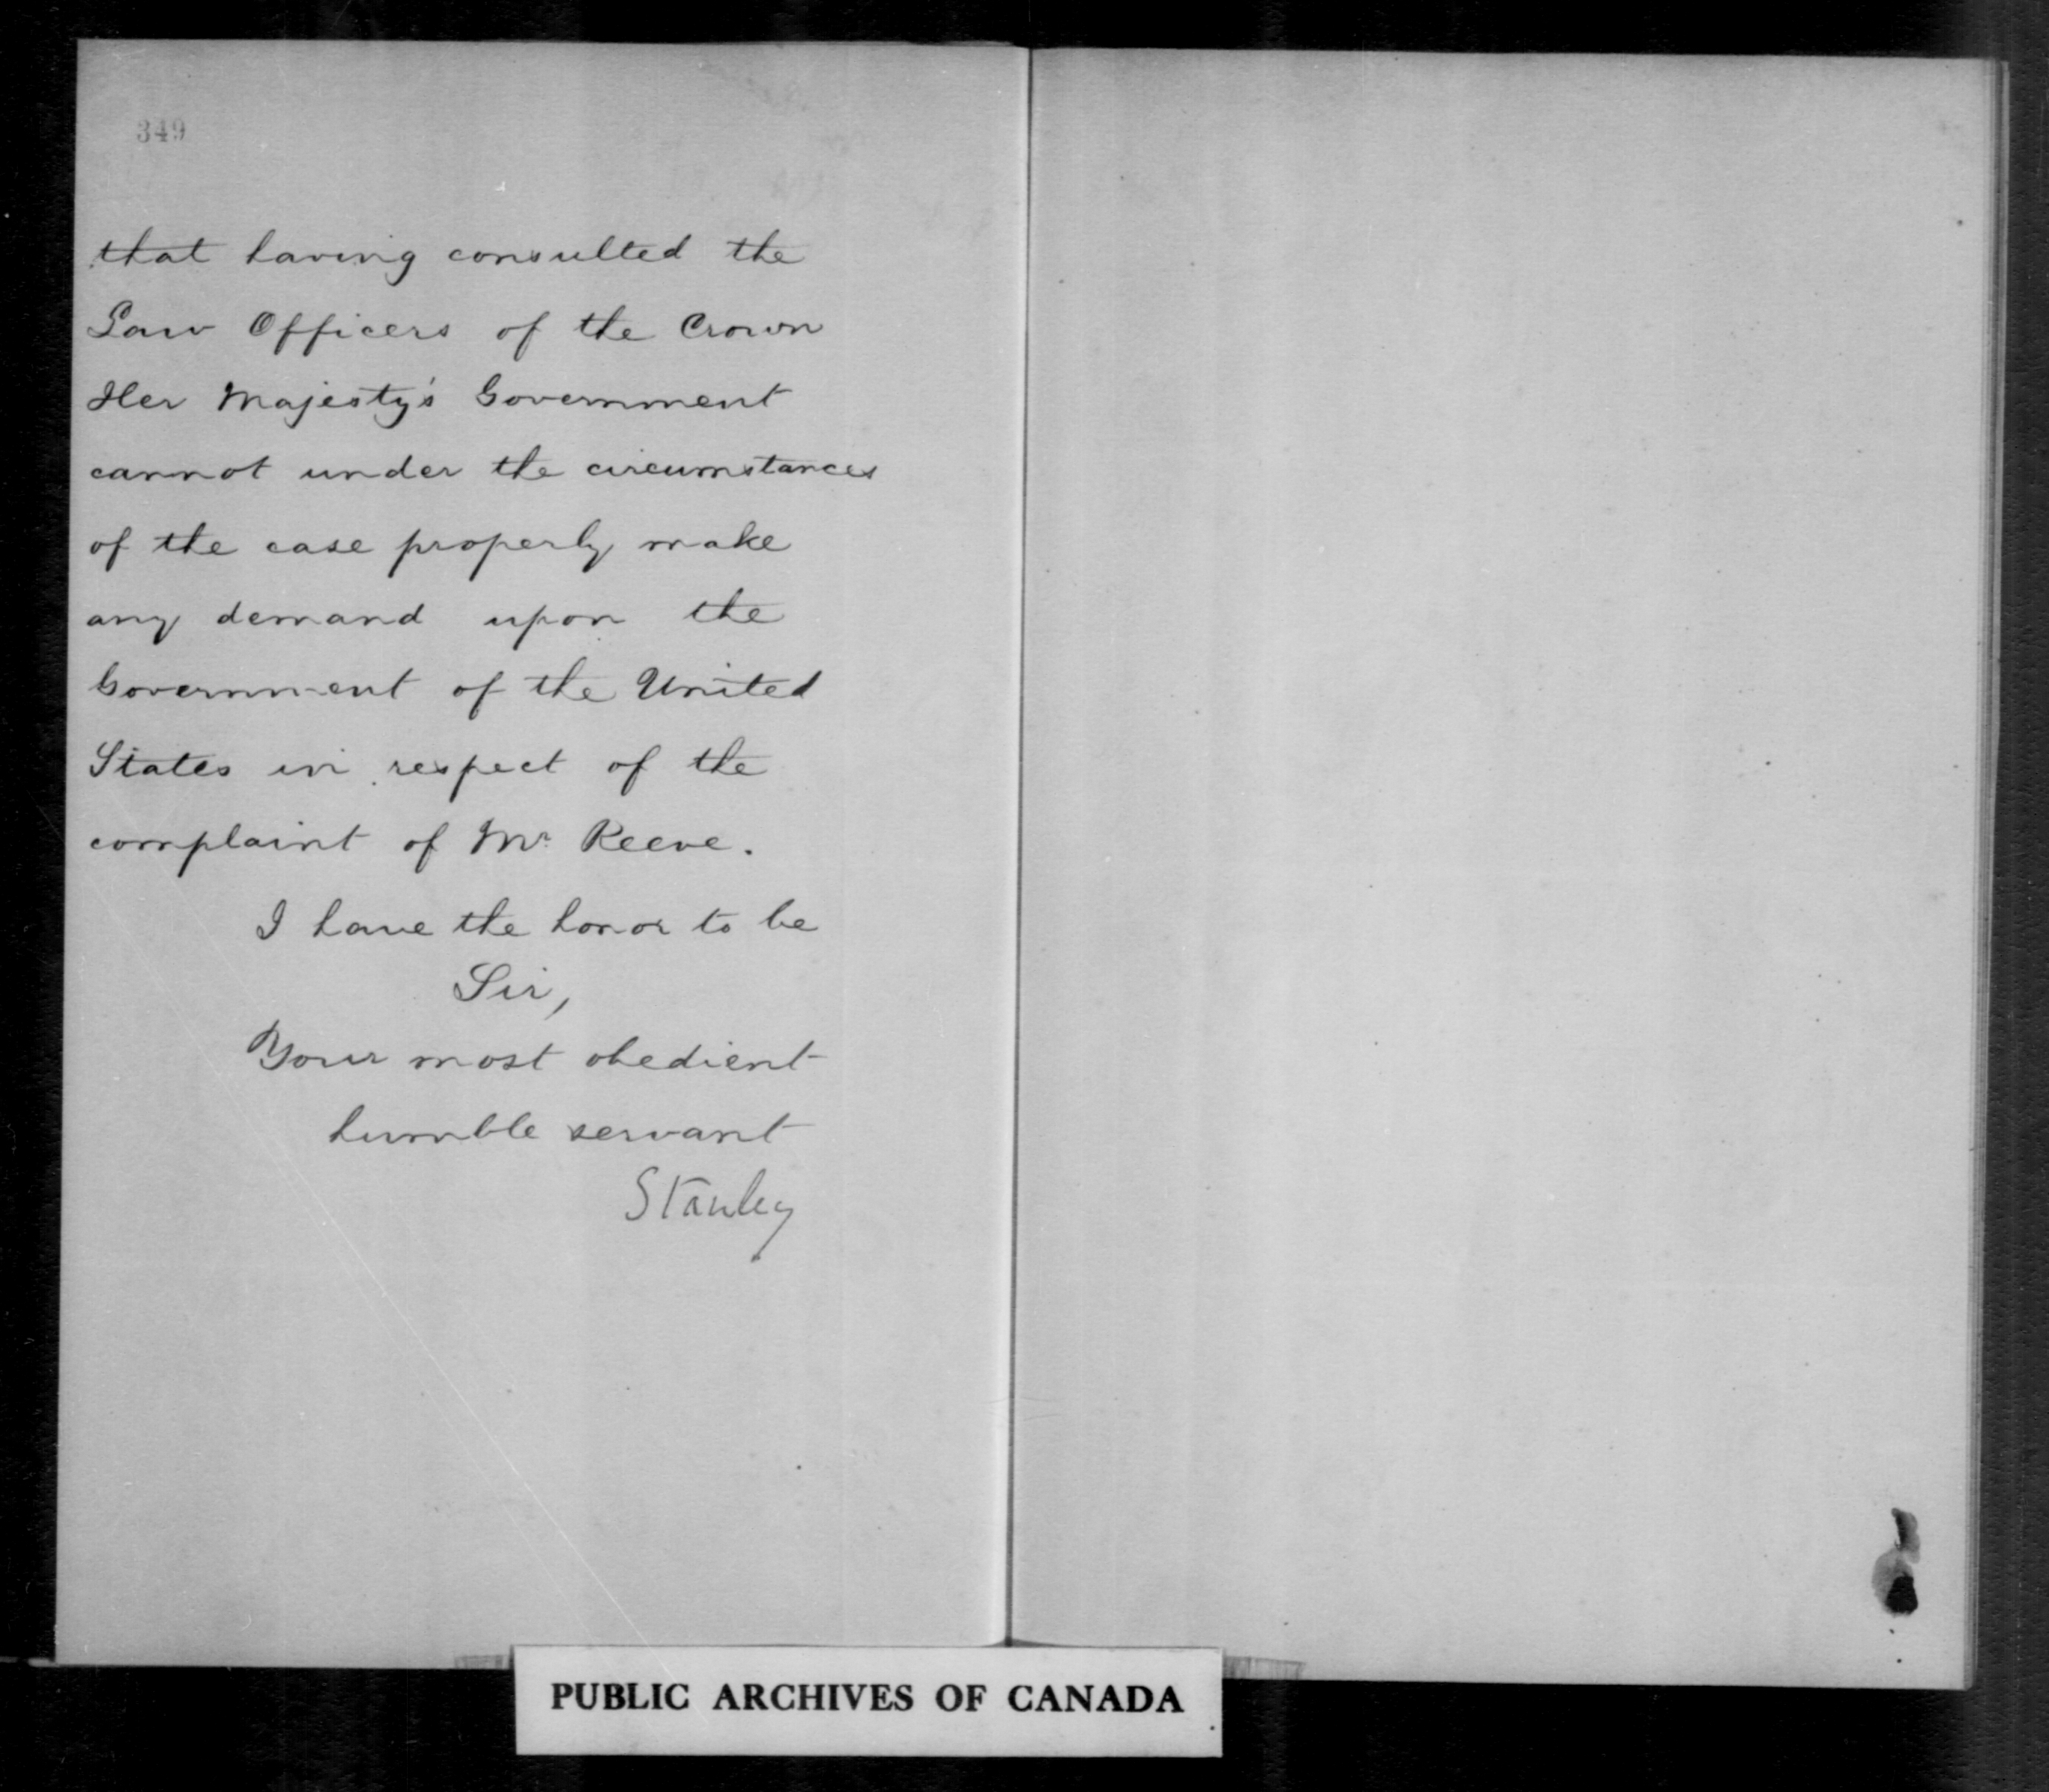 349
that having consulted the
Law Officers of the Crown
Her Majesty's Government
cannot under the circumstances
of the case properly make
any demand upon the
Government of the United
States in respect of the
complaint of Mr. Reeve.
I have the honor to be
Sir,
Your most obedient
humble servant
Stanley
PUBLIC ARCHIVES OF CANADA